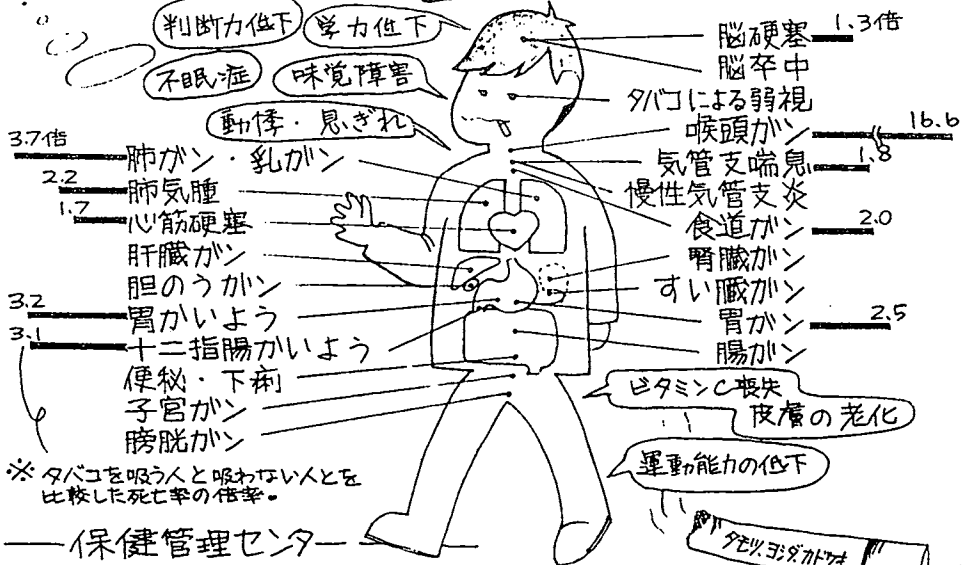 判断力低下
学力低下
不眠症
味覚障害
動悸・息ぎれ
3.7倍
肺ガン・乳がン
2.2
肺気腫
1.7
心筋硬塞
肝臓ガン
胆のうガン
3.2
胃かいよう
3.1
十二指腸かいよう
便秘・下痢
子宮ガン
膀胱ガン
脳硬塞
1.3倍
脳卒中
タバコによる弱視
喉頭ガン
16.6
気管支喘息
1.8
慢性気管支炎
食道ガン
2.0
腎臓ガン
すい臓ガン
胃ガン
2.5
腸ガン
ビタミンC喪失
皮膚の老化
運動能力の低下
※タバコを吸う人と吸わない人とを
比較した死亡率の倍率。
保健管理センター